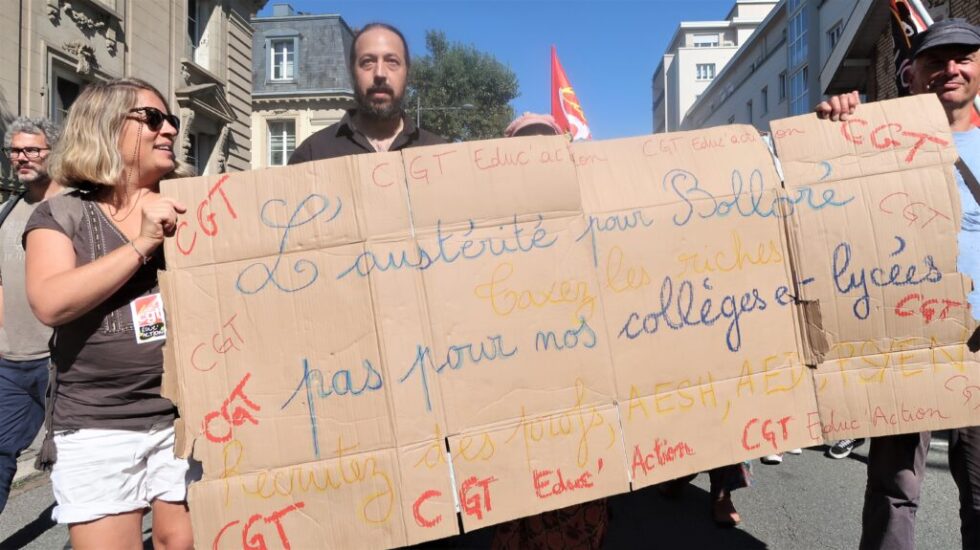 CGT Educ'action CGT Educ'action CGT
CGT
L'austérité pour Bolloré
CGT
Taxez les riches
pas pour nos collèges et lycées
CGT
CGT
CGT
Recrutez des profs, AESH, AED, PSYEN
CGT CGT CGT Educ' Action CGT Educ'Action
cgt
éduc'
action